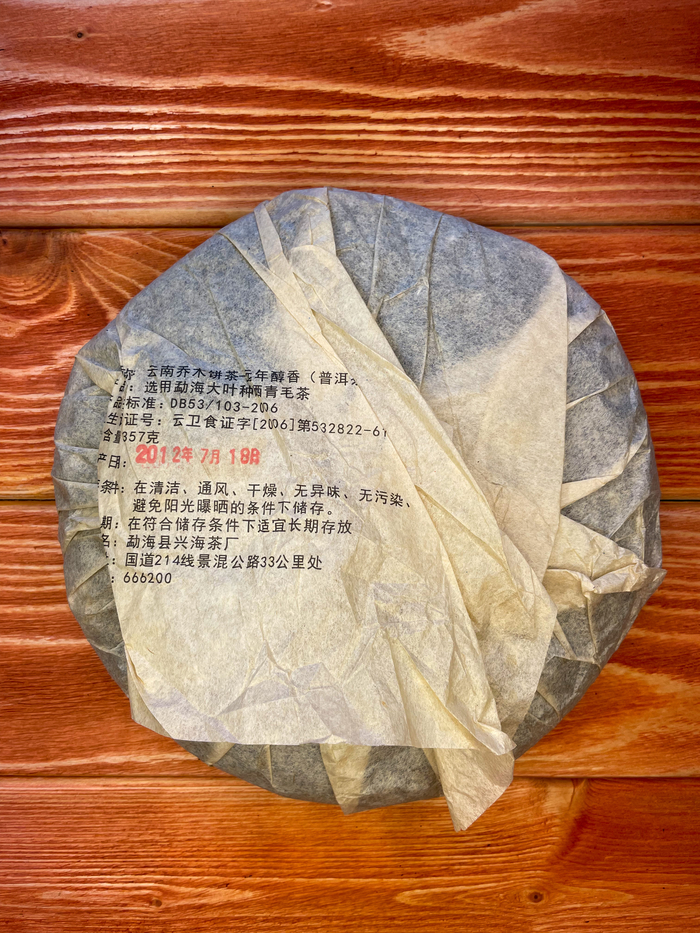 称: 云南乔木饼茶 年醇香（普洱
: 选用勐海大叶种晒青毛茶
品标准: DB53/103-2006
生证号: 云卫食证字[2006]第532822-61
含量357克
产日: 2012年7月18日
条件: 在清洁、通风、干燥、无异味、无污染、
避免阳光曝晒的条件下储存。
期: 在符合储存条件下适宜长期存放
名: 勐海县兴海茶厂
: 国道214线景混公路33公里处
: 666200